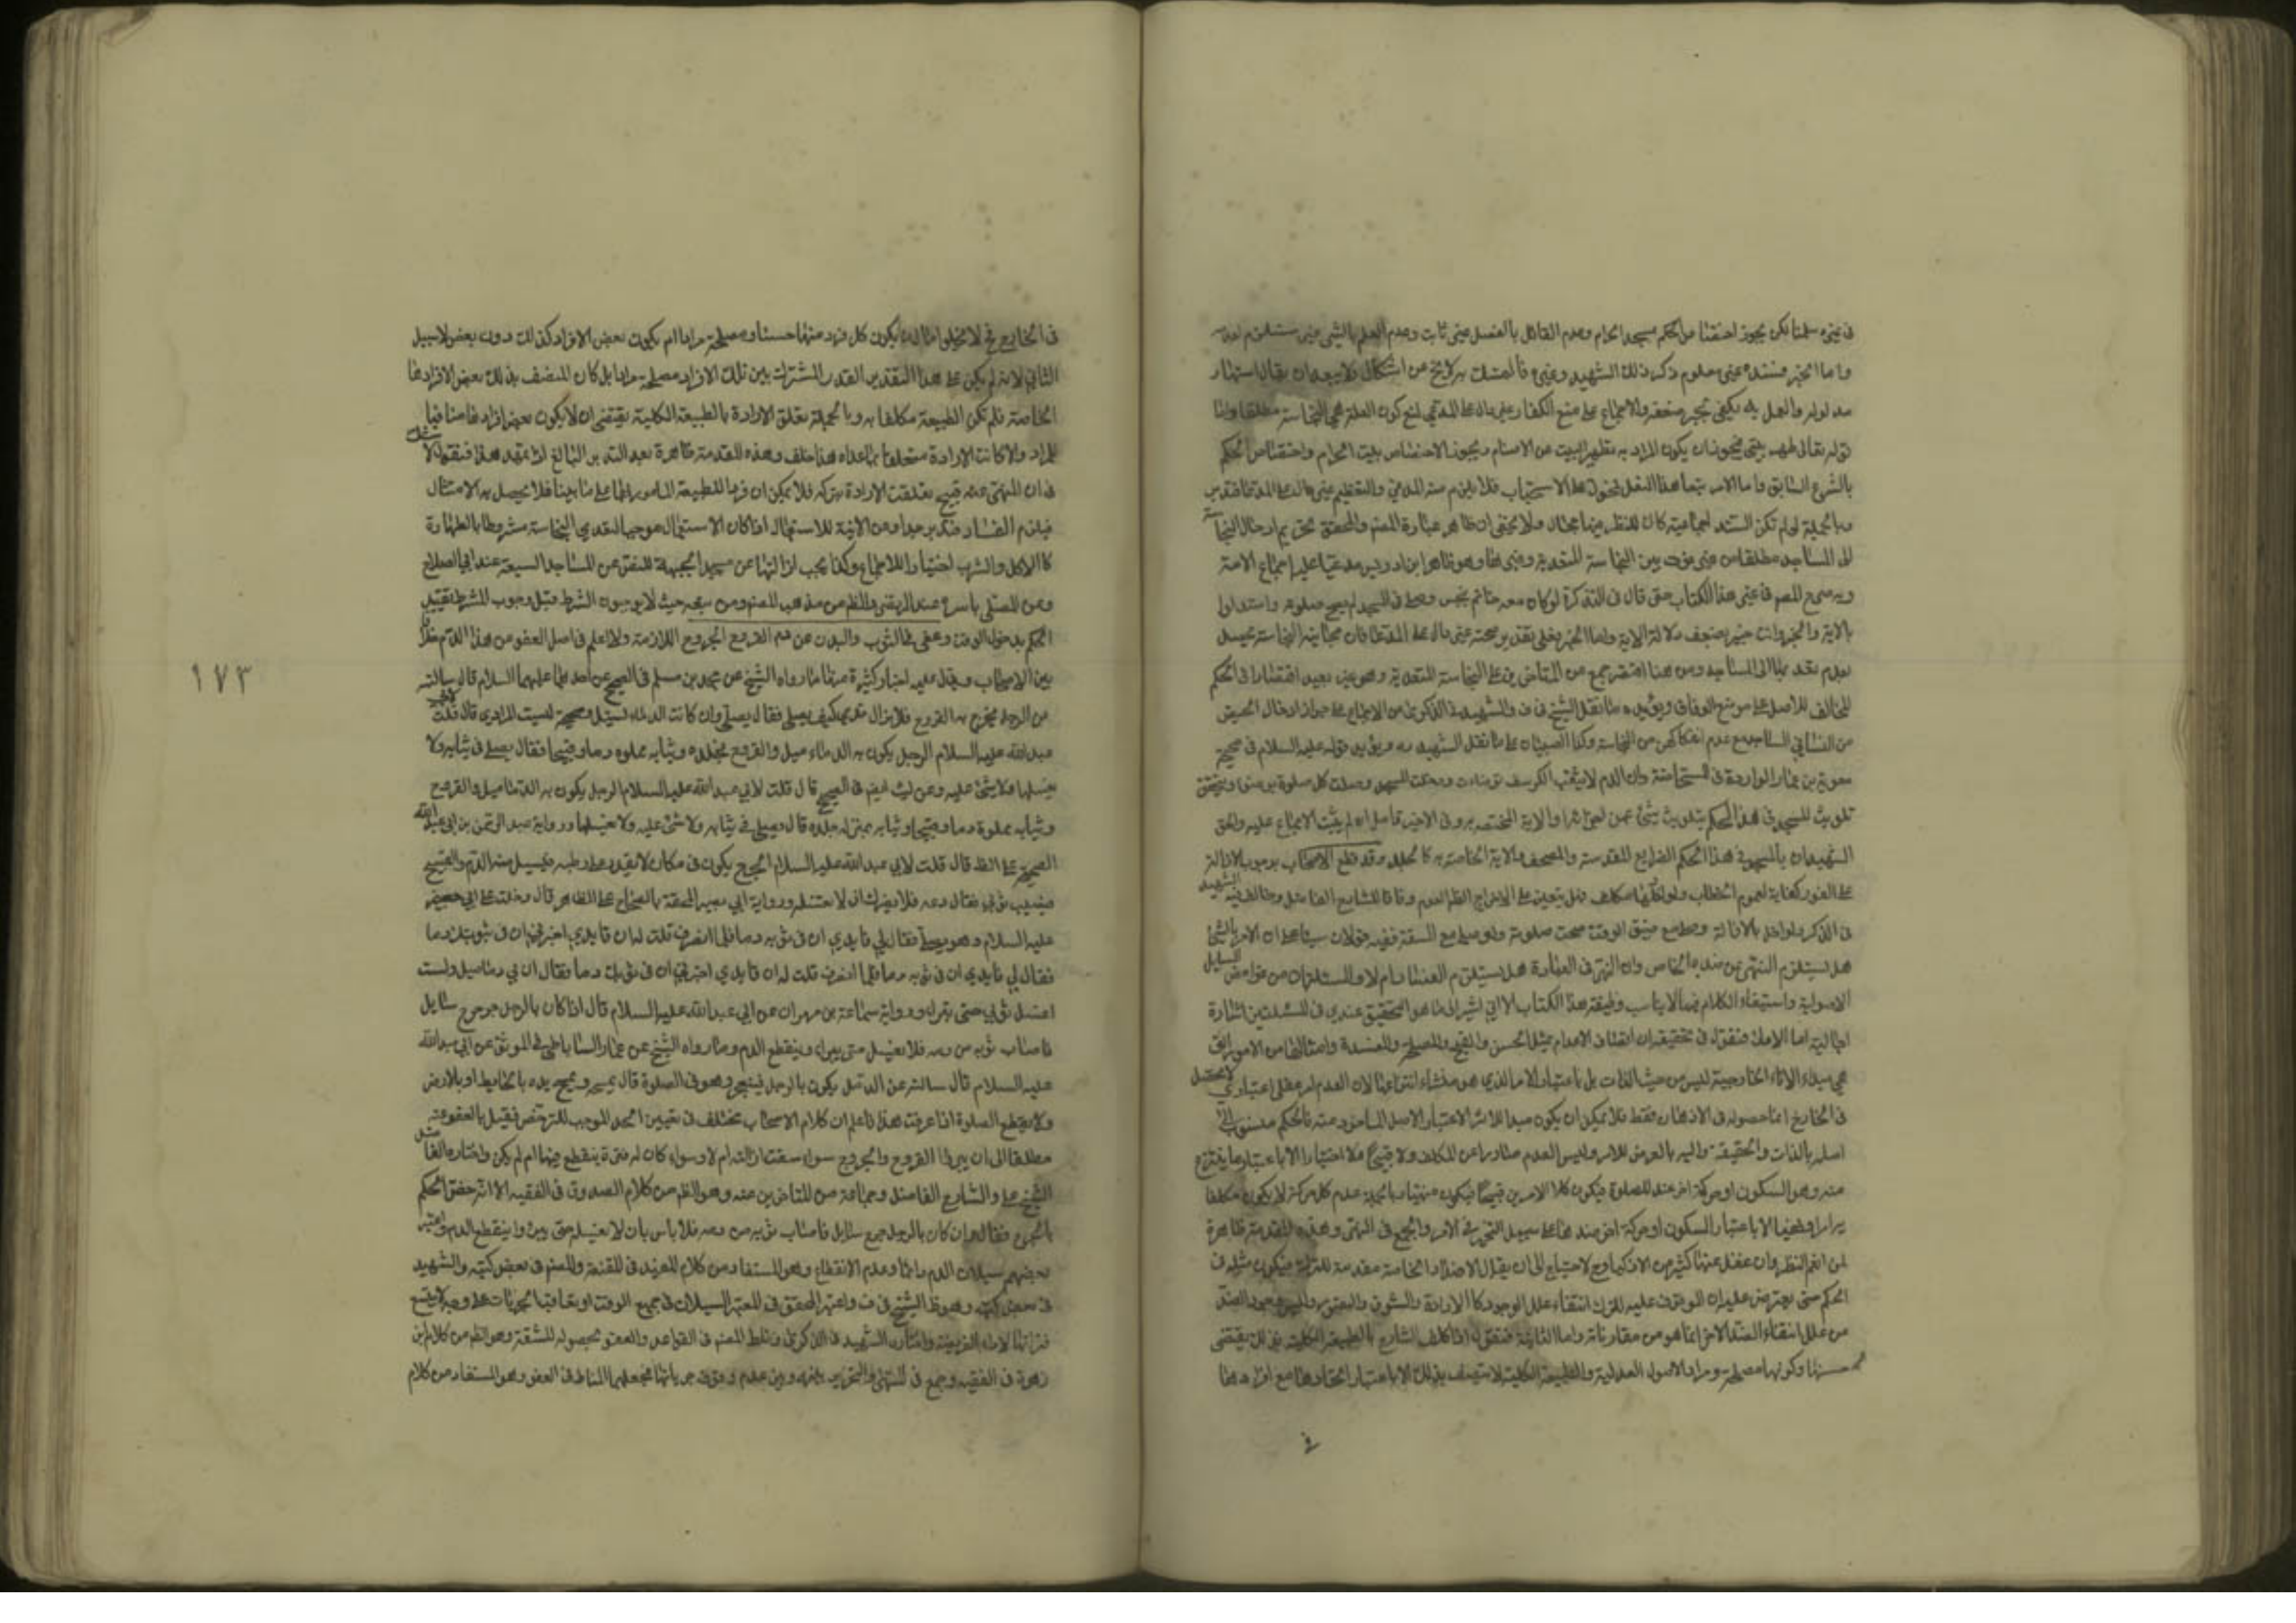 في غيره سلمنا لكن يجوز اختصاص الحكم بمسجد الحرام وعدم القائل بالفصل غير ثابت وعدم العلم بالشيء غير مستلزم لعدمه
واما الخبر فسنده غير معلوم ذكر ذلك الشهيد وغيره فالتمسك به لا يخ عن اشكال ولا يبعد ان يقال اشتهار
مدلوله والعمل به يكفي لجبر ضعفه والاجماع على منع الكفار غير دال على المدعى لمنع كون العلة هي النجاسة مطلقا واما
قوله تعالى طهر بيتي فيجوز ان يكون المراد به تطهير البيت عن الاصنام ويجوز الاختصاص ببيت الحرام واختصاص الحكم
بالشرع السابق واما الامر بتعاهد النعل فمحمول على الاستحباب فلا يلزم منه المدعى والتعظيم غير دال على المدعى فتدبر
وبالجملة لو لم تكن المسئلة اجماعية كان للنظر فيها مجال ولا يخفى ان ظاهر عبارة المصنف والمحقق تحريم ادخال النجاسة
الى المساجد مطلقا من غير فرق بين النجاسة المتعدية وغيرها وهو ظاهر ابن ادريس مدعيا عليه اجماع الامة
وبه صرح المصنف في غير هذا الكتاب حتى قال في التذكرة لو كان معه خاتم نجس وصلى في المسجد لم يصح صلوته واستدلوا
بالاية والخبر وانت خبير بضعف دلالة الاية واما الخبر فعلى تقدير صحته غير دال على المدعى فان مجانبة النجاسة يحصل
بعدم تعديها الى المساجد ومن هنا اقتصر جمع من المتاخرين على النجاسة المتعدية وهو غير بعيد اقتصارا في الحكم
المخالف للاصل على موضع الوفاق ويؤيده ما نقل الشيخ في ف والشهيد في الذكرى من الاجماع على جواز ادخال الحيض
من النساء في المساجد مع عدم انفكاكهن من النجاسة وكذا الصبيان على ما نقل الشهيد ره ويؤيد قوله عليه السلام في صحيحة
معوية بن عمار الواردة في المستحاضة وان كان الدم لا يثقب الكرسف توضات ودخلت المسجد وصلت كل صلوة بوضوء ويتحقق
تلويث المسجد في هذا الحكم بتلويث شيء من اجزائها والاية المختصة به وفي الاخير تامل اذ لم يثبت الاجماع عليه والحق
الشهيدان بالمسجد في هذا الحكم الضرايح المقدسة والمصحف والاية الخاصة به كالجلد وقد قطع الاصحاب بوجوب الازالة
على الفور كفاية لعموم الخطاب ولو ادخلها مكلف فهل يتعين عليه الاخراج الظاهر العدم وفاقا للشارع الفاضل وخالف فيه الشهيد
في الذكرى ولو اخل بالازالة وصلى مع ضيق الوقت صحت صلوته ولو صلى مع السعة ففيه قولان مبنيان على ان الامر بالشيء
هل يستلزم النهي عن ضده الخاص وان النهي في العبادة هل يستلزم الفساد ام لا والمسئلتان من غوامض المسائل
الاصولية واستيفاء الكلام فيهما لا يناسب وظيفة هذا الكتاب الا اني اشير الى ما هو التحقيق عندي في المسئلتين اشارة
اجمالية اما الاولى فنقول في تحقيقه ان اتصاف الاعدام بمثل الحسن والقبح والمصلحة والمفسدة وامثالها من الامور التي
هي مبداء الاثار الخارجية ليس من حيث الذات بل باعتبار الامر الذي هو منشاء انتزاعها لان العدم امر عقلي اعتباري لا يحصل
في الخارج انما حصوله في الاذهان فقط فلا يمكن ان يكون مبدا للاثر الا باعتبار الاصل الماخوذ عنه فالحكم منسوب الى
اصله بالذات والحقيقة واليه بالعرض فالامر وليس العدم صادرا عن المكلف ولا قبيحا ولا اختيارا الا باعتبار ما ينتزع
منه وهو السكون او حركة اخر ضد للصلوة فيكون كلا الامرين قبيحا فيكون منهيا بالجملة عدم كل حركة لا يكون مكلفا
به امرا ونهيا الا باعتبار السكون او حركة اخر ضدها على سبيل التخيير في الامر والجمع في النهي وهذه المقدمة ظاهرة
لمن انعم النظر وان غفل عنها كثير من الاذكياء وح لا حاجة الى ان يقال الاضداد الخاصة مقدمة للترك فيكون مثله في
الحكم حتى يعترض عليه ان الموقوف عليه للترك انتفاء علل الوجود كالارادة والشوق والتصور وليس وجود الضد
من علل انتفاء الضد الاخر انما هو من مقارناته واما الثانية فنقول اذا كلف الشارع بالطبيعة الكلية فذلك يقتضي
حسنها وكونها مصلحة ومرادا لاصول العدلية والطبيعة الكلية لا تتصف بذلك الا باعتبار اتحادها مع افرادها
في
في الخارج فح لا يخلوا اما ان يكون كل فرد منها حسنا ومصلحة مرادا ام يكون بعض الافراد كذلك دون بعض لا سبيل
الثاني لانه لم يكن على هذا التقدير القدر المشترك بين تلك الافراد مصلحة مرادا بل كان المتصف بذلك بعض الافراد
الخاصة فلم تكن الطبيعة مكلفا به وبالجملة تعلق الارادة بالطبيعة الكلية يقتضي ان لا يكون بعض افرادها منافيا
للمراد والا كانت الارادة متعلقا بما عداه هذا خلف وهذه المقدمة ظاهرة بعد التدبر البالغ اذا تمهد هذا فنقول لا شك
في ان المنهي عنه قبيح تعلقت الارادة بتركه فلا يمكن ان فردا للطبيعة المامور بها على ما بينا فلا يحصل به الامتثال
فيلزم الفساد فتدبر جدا وعن الانية للاستعمال اذا كان الاستعمال موجبا لتعدي النجاسة مشروطا بالطهارة
كالاكل والشرب اختيارا للاجماع وكذا يجب ازالتها عن مسجد الجبهة للنص عن المساجد السبعة عند ابي الصلاح
وعن المصلى باسره عند المرتضى والظاهر من مذهب المصنف ومن تبعه حيث لا يوجبون الشرط قبل وجوب المشروط تقييد
الحكم بدخول الوقت وعفى في الثوب والبدن عن دم القروح الجروح اللازمة ولا اعلم في اصل العفو من هذا الدم خلافا
بين الاصحاب ويدل عليه اخبار كثيرة منها ما رواه الشيخ عن محمد بن مسلم في الصحيح عن احدهما عليهما السلام قال سالته
عن الرجل يخرج به القروح فلا يزال تدمى كيف يصلي فقال يصلي وان كانت الدماء تسيل وصحيحة ليث المرادي قال قلت لابي
عبد الله عليه السلام الرجل يكون به الدماميل والقروح فجلده وثيابه مملوه دما وقيحا فقال يصلي في ثيابه ولا
يغسلها ولا شيء عليه وعن ليث ايضا في الصحيح قال قلت لابي عبد الله عليه السلام الرجل يكون به الدماميل والقروح
وثيابه مملوة دما وقيحا وثيابه بمنزلة جلده قال يصلي في ثيابه ولا شيء عليه ولا يغسلها ورواية عبد الرحمن بن ابي عبد الله
الصحيحة على الظ قال قلت لابي عبد الله عليه السلام الجرح يكون في مكان لا يقدر على ربطه فيسيل منه الدم والقيح
فيصيب ثوبي فقال دعه فلا يضرك ان لا تغسله ورواية ابي بصير الملحقة بالصحاح على الظاهر قال دخلت على ابي جعفر
عليه السلام وهو يصلي فقال لي قايدي ان في ثوبه دما فلما انصرف قلت له ان قايدي اخبرني ان في ثوبك دما
فقال لي قايدي ان في ثوبه دما فلما انصرف قلت له ان قايدي اخبرني ان في ثوبك دما فقال ان بي دماميل ولست
اغسل ثوبي حتى تبرا ورواية سماعة بن مهران عن ابي عبد الله عليه السلام قال اذا كان بالرجل جرح سايل
فاصاب ثوبه من دمه فلا يغسله حتى يبرا وينقطع الدم وما رواه الشيخ عن عمار الساباطي في الموثق عن ابي عبد الله
عليه السلام قال سالته عن الدمل يكون بالرجل فينفجر وهو في الصلوة قال يمسحه ويمسح يده بالحايط او بالارض
ولا يقطع الصلوة اذا عرفت هذا فاعلم ان كلام الاصحاب مختلف في تعيين الحد الموجب للترخص فقيل بالعفو عنه
مطلقا الى ان يبرا القروح والجروح سواء شقت ازالته ام لا وسواء كان له فترة ينقطع فيها ام لم يكن واختاره الفاضل
الشيخ علي والشارع الفاضل وجماعة من المتاخرين عنه وهو الظاهر من كلام الصدوق في الفقيه الا انه خص الحكم
بالجرح فقال وان كان بالرجل جرح سايل فاصاب ثوبه من دمه فلا باس بان لا يغسل حتى يبرا وينقطع الدم واعتبر
بعضهم سيلان الدم دائما وعدم الانقطاع وهو المستفاد من كلام المفيد في المقنعة والمصنف في بعض كتبه والشهيد
في بعض كتبه وهو ظ الشيخ في ف واعتبر المحقق في المعتبر السيلان في جميع الوقت او تعاقب الجريات على وجه لا يتسع
فتراتها لاداء الفريضة واختاره الشهيد في الذكرى وناط المصنف في القواعد والعفو بحصوله للمشقة وهو الظاهر من كلام ابن
زهرة في الفقيه وجمع في المنتهى والتحرير بينه وبين عدم وقوف جريانها فجعلهما المناط في العفو وهو المستفاد من كلام
١٧٣